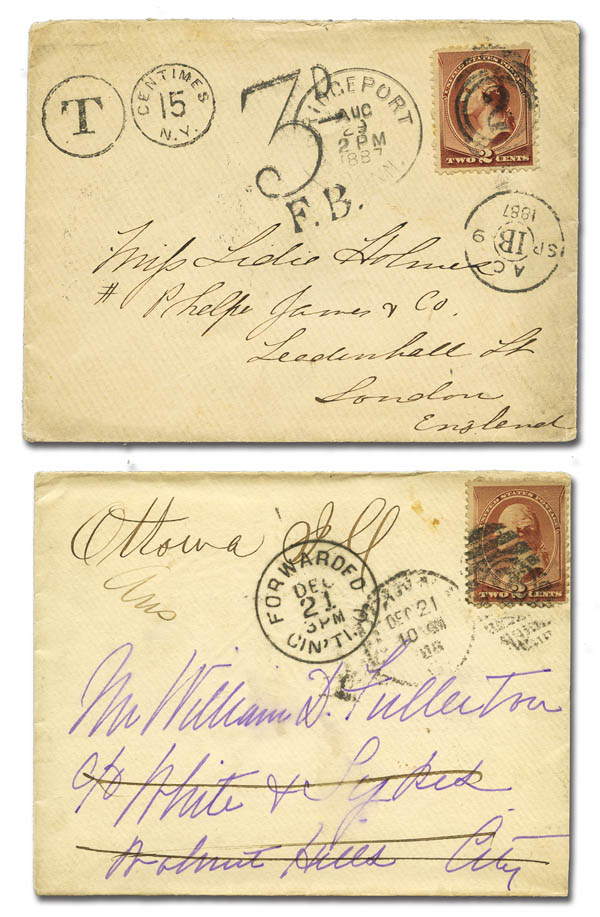 T
CENTIMES
15
N.Y.
3D
F.B.
BRIDGEPORT
AUG
29
2 PM
1887
UNITED STATES POSTAGE
2
TWO 2 CENTS
A C
IB
SP 9
1887
Miss Lidie Holmes
# Phelps James & Co.
Leadenhall St
London
England
Ottowa Ill
Ans
FORWARDED
DEC
21
3PM
CIN'TI.
DEC 21
UNITED STATES POSTAGE
TWO 2 CENTS
Mr William D. Fullerton
c/o White & Sykes
Walnut Hills City